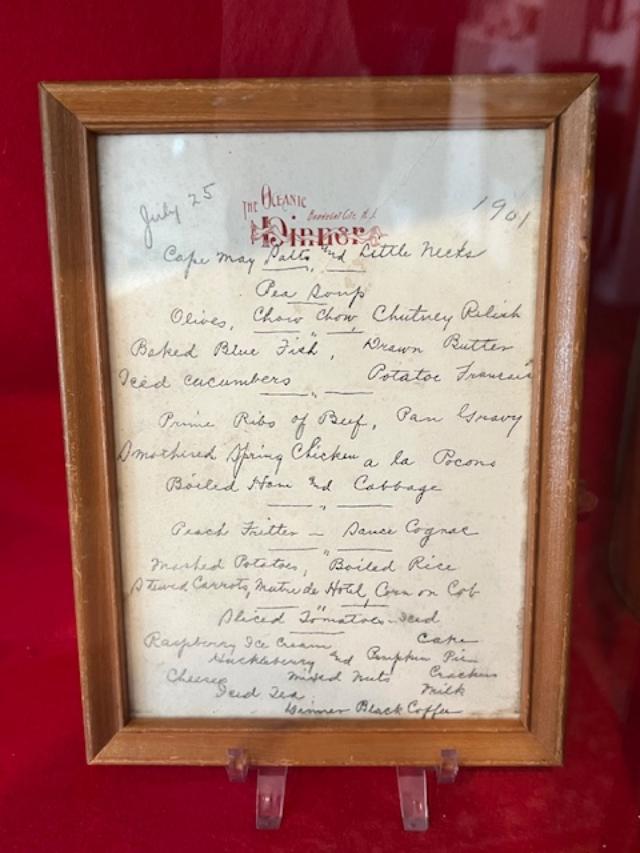 July 25 1901
THE OCEANIC
Dinner
Cape May Salts and Little Necks
Pea Soup
Olives, Chow Chow Chutney Relish
Baked Blue Fish, Drawn Butter
Iced cucumbers Potatoe Francais
Prime Ribs of Beef, Pan Gravy
Smothered Spring Chicken a la
Boiled Ham and Cabbage
Peach Fritter – Sauce Cognac
Mashed Potatoes, Boiled Rice
Stewed Carrots, de Hotel, Corn on Cob
Sliced Tomatoes – Iced
Raspberry Ice Cream Cake
Huckleberry and Pumpkin Pie
Cheese Mixed Nuts Crackers
Iced Tea Milk
Dinner Black Coffee